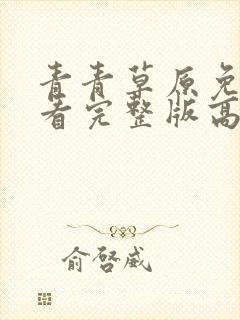 青青草原免
看完整版高
俞启威